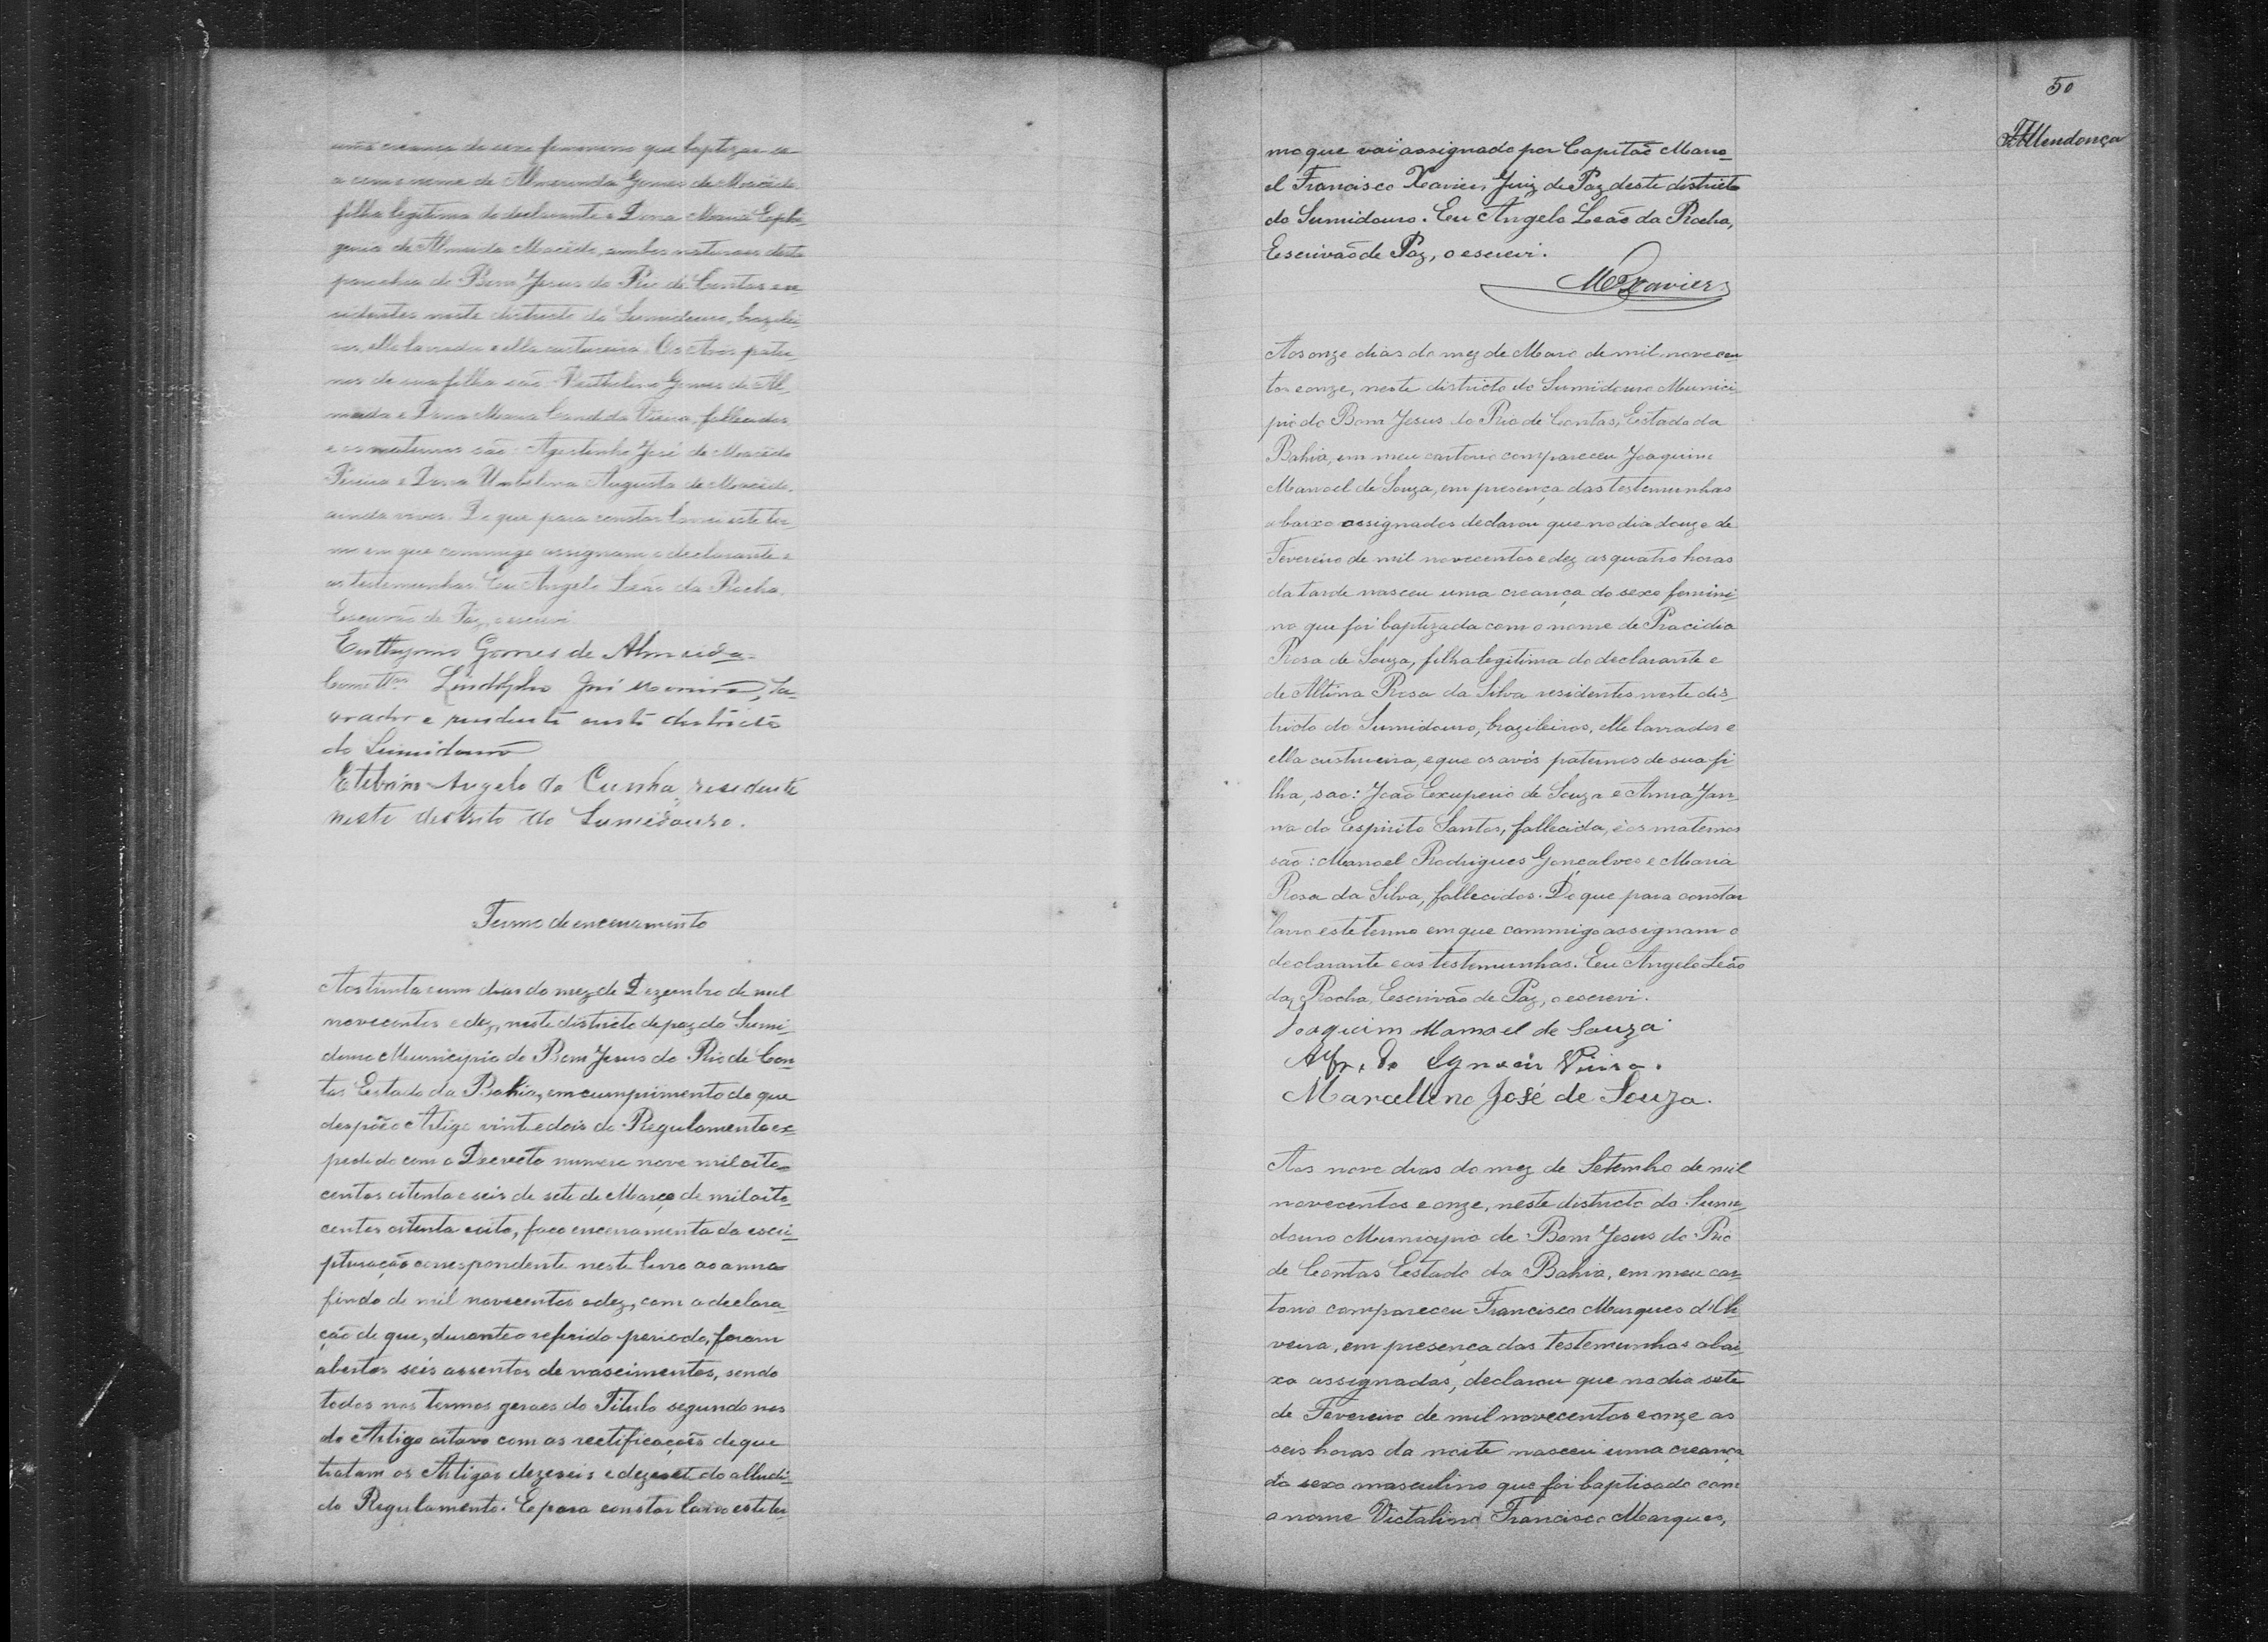 uma creança do sexo feminino que baptizou-se
a com o nome de Almerinda Gomes de Macêdo
filha legitima do declarante e Dona Maria Ephi-
genia de Almeida Macêdo, ambos naturaes desta
parochia do Bom Jesus do Rio de Contas re-
sidentes neste districto do Sumidouro, brazilei-
ros, elle lavrador e ella custureira. Os Avos pater-
nos de sua filha são Gomes de Al-
meida e Dona Maria Candida Vieira, fallecidos
e os maternos são: Agostinho José de Macêdo
Pereira e Dona Umbelina Augusta de Macêdo,
ainda vivos. Do que para constar lavrei este ter-
mo em que commigo assignam o declarante e
as testemunhas. Eu Angelo Leão da Rocha,
Escrivão de Paz, o escrevi.
Gomes de Almeida
Lindolpho José la-
vrador e residente neste districto
do Sumidouro
Angelo da Cunha, residente
neste destrito do Sumidouro.
Termo de encerramento
Aos trinta e um dias do mez de Dezembro de mil
novecentos e dez, neste districto de paz do Sumi-
douro Municipio do Bom Jesus do Rio de Con-
tas Estado da Bahia, em cumprimento do que
despõe o Artigo vinte e dois do Regulamento ex-
pedido com o Decreto numero nove mil oito-
centos oitenta e seis de sete de Março de mil oito-
centos oitenta e oito, faço encerramento da escri-
pturação correspondente neste livro ao anno
findo de mil novecentos e dez, com a declara-
ção de que, durante o referido periodo, foram
abertos seis assentos de nascimentos, sendo
todos nos termos geraes do Titulo segundo nos
do Artigo oitavo com as rectificações de que
tratam os Artigos dezeseis e dezesete do alludi-
do Regulamento. E para constar lavro este ter-
50
Mendonça
mo que vai assignado por Capitão Mano-
el Francisco Xavier, Juiz de Paz deste districto
do Sumidouro. Eu Angelo Leão da Rocha,
Escrivão de Paz, o escrevi.
MFXavier
Aos onze dias do mez de Maro de mil novecen-
tos e onze, neste districto do Sumidouro Munici-
pio do Bom Jesus do Rio de Contas, Estado da
Bahia, em meu cartorio compareceu Joaquim
Manoel de Souza, em presença das testemunhas
abaixo assignados declarou que no dia douze de
Fevereiro de mil novecentos e dez as quatro horas
da tarde nasceu uma creança do sexo femini-
no que foi baptizada com o nome de Pracidia
Rosa de Souza, filha legitima do declarante e
de Altina Rosa da Silva residentes neste dis-
tricto do Sumidouro, brazileiros, elle lavrador e
ella custureira, e que os avós paternos de sua fi-
lha, sao: João Exuperio de Souza e Anna Joan-
na do Espirito Santos, fallecida, e os maternos
são: Manoel Rodrigues Gonçalves e Maria
Rosa da Silva, fallecidos. Do que para constar
lavro este termo em que commigo assignam o
declarante e as testemunhas. Eu Angelo Leão
da Rocha, Escrivão de Paz, o escrevi.
Joaquim Manoel de Souza
Vieira.
Marcellino José de Souza.
Aos nove dias do mez de Setembro de mil
novecentos e onze, neste districto do Sumi-
douro Municipio de Bom Jesus do Rio
de Contas Estado da Bahia, em meu car-
torio compareceu Francisco Marques d'Oli-
veira, em presença das testemunhas abai-
xo assignadas, declarou que no dia sete
de Fevereiro de mil novecentos e onze as
seis horas da noite nasceu uma creança
do sexo masculino que foi baptisado com
o nome Victalino Francisco Marques,